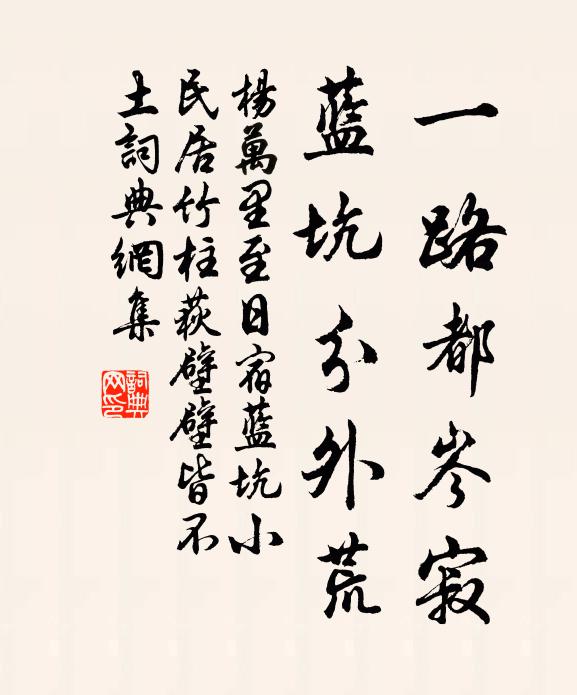 一路都岑寂
藍坑分外荒
楊萬里至日宿藍坑小
民居竹柱荻壁壁皆不
土詞典網集
詞典网印